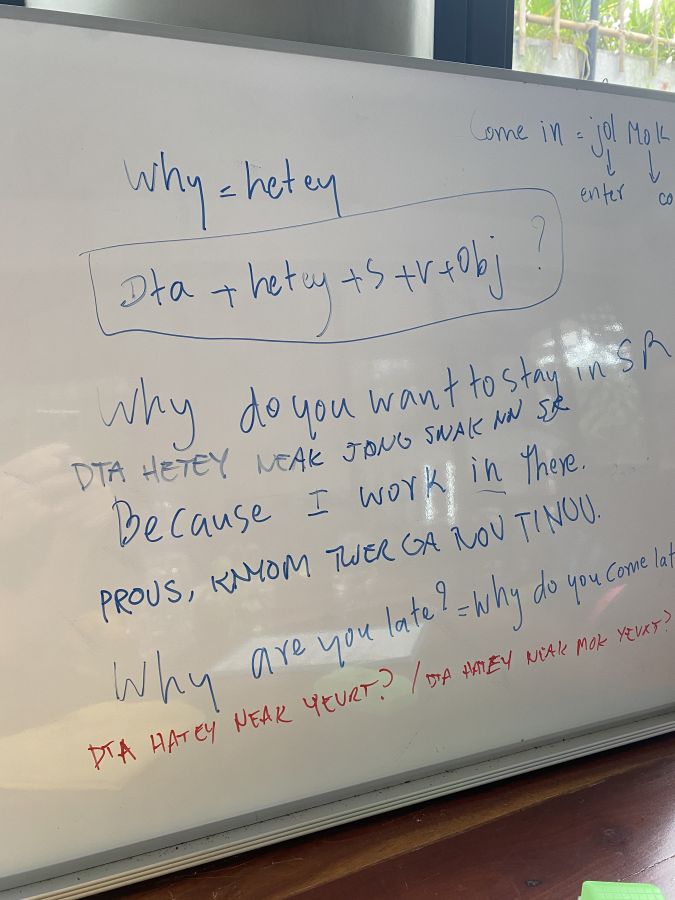 Come in = jol Mok
↓ ↓
enter co
Why = hetey
Dta + hetey + S + V + Obj ?
Why do you want to stay in SR
DTA HETEY NEAK JONG SNAK NN SR
Because I work in there.
PROUS, KNYOM TWER GA NOV TINUU.
Why are you late? = Why do you come lat
DTA HATEY NEAK YEURT? / DTA HATEY NEAK MOK YEURT?